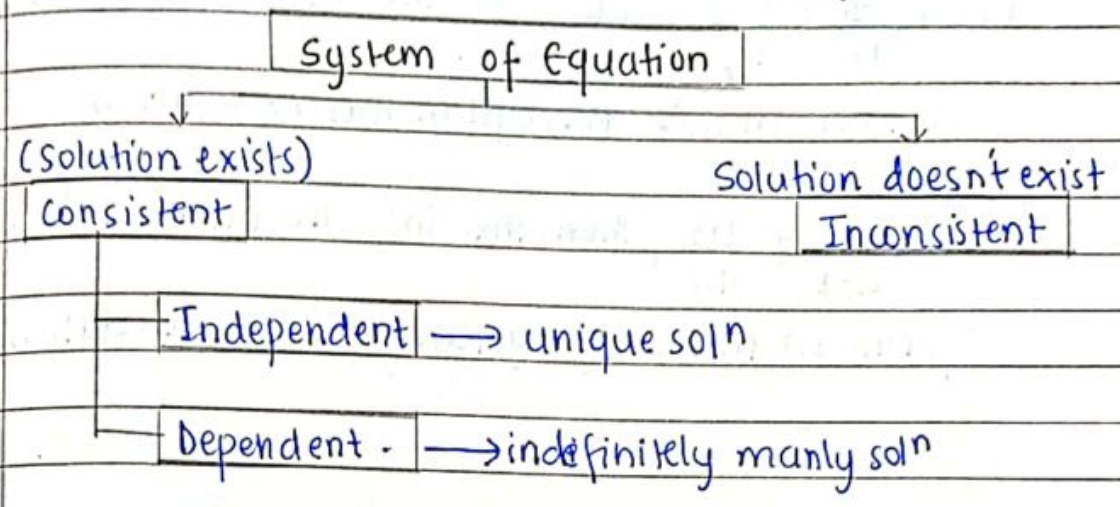 System of Equation
(solution exists)
Solution doesn't exist
Consistent
Inconsistent
Independent → unique solⁿ
Dependent. → indefinitely manly solⁿ